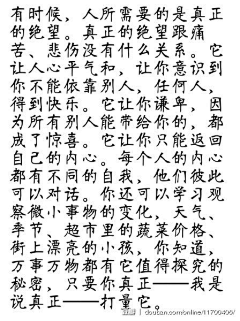 有时候，人所需要的是真正
的绝望。真正的绝望跟痛
苦、悲伤没有什么关系。它
让人心平气和，让你意识到
你不能依靠别人，任何人，
得到快乐。它让你谦卑，因
为所有别人能带给你的，都
成了惊喜。它让你只能返回
自己的内心。每个人的内心
都有不同的自我，他们彼此
可以对话。你还可以学习观
察微小事物的变化，天气、
季节、超市里的蔬菜价格、
街上漂亮的小孩，你知道，
万事万物都有它值得探究的
秘密，只要你真正——我是
说真正——打量它。
douban.com/online/11700400/